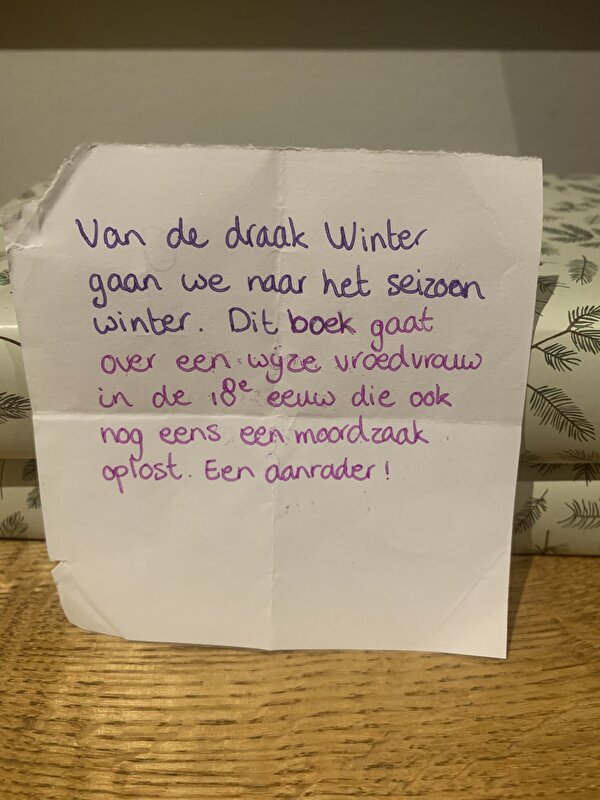 Van de draak Winter
gaan we naar het seizoen
winter. Dit boek gaat
over een wijze vroedvrouw
in de 18e eeuw die ook
nog eens een moordzaak
oplost. Een aanrader!